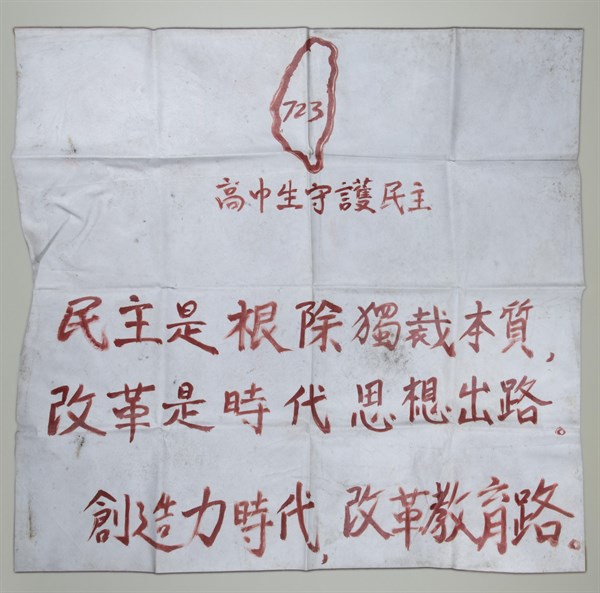 723
高中生守護民主
民主是根除獨裁本質，
改革是時代思想出路。
創造力時代，改革教育路。